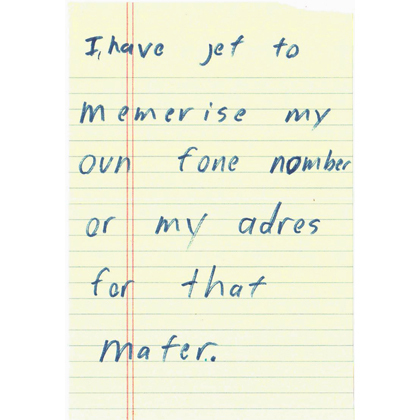 I, have jet to
memerise my
oun fone nomber
or my adres
for that
mater.